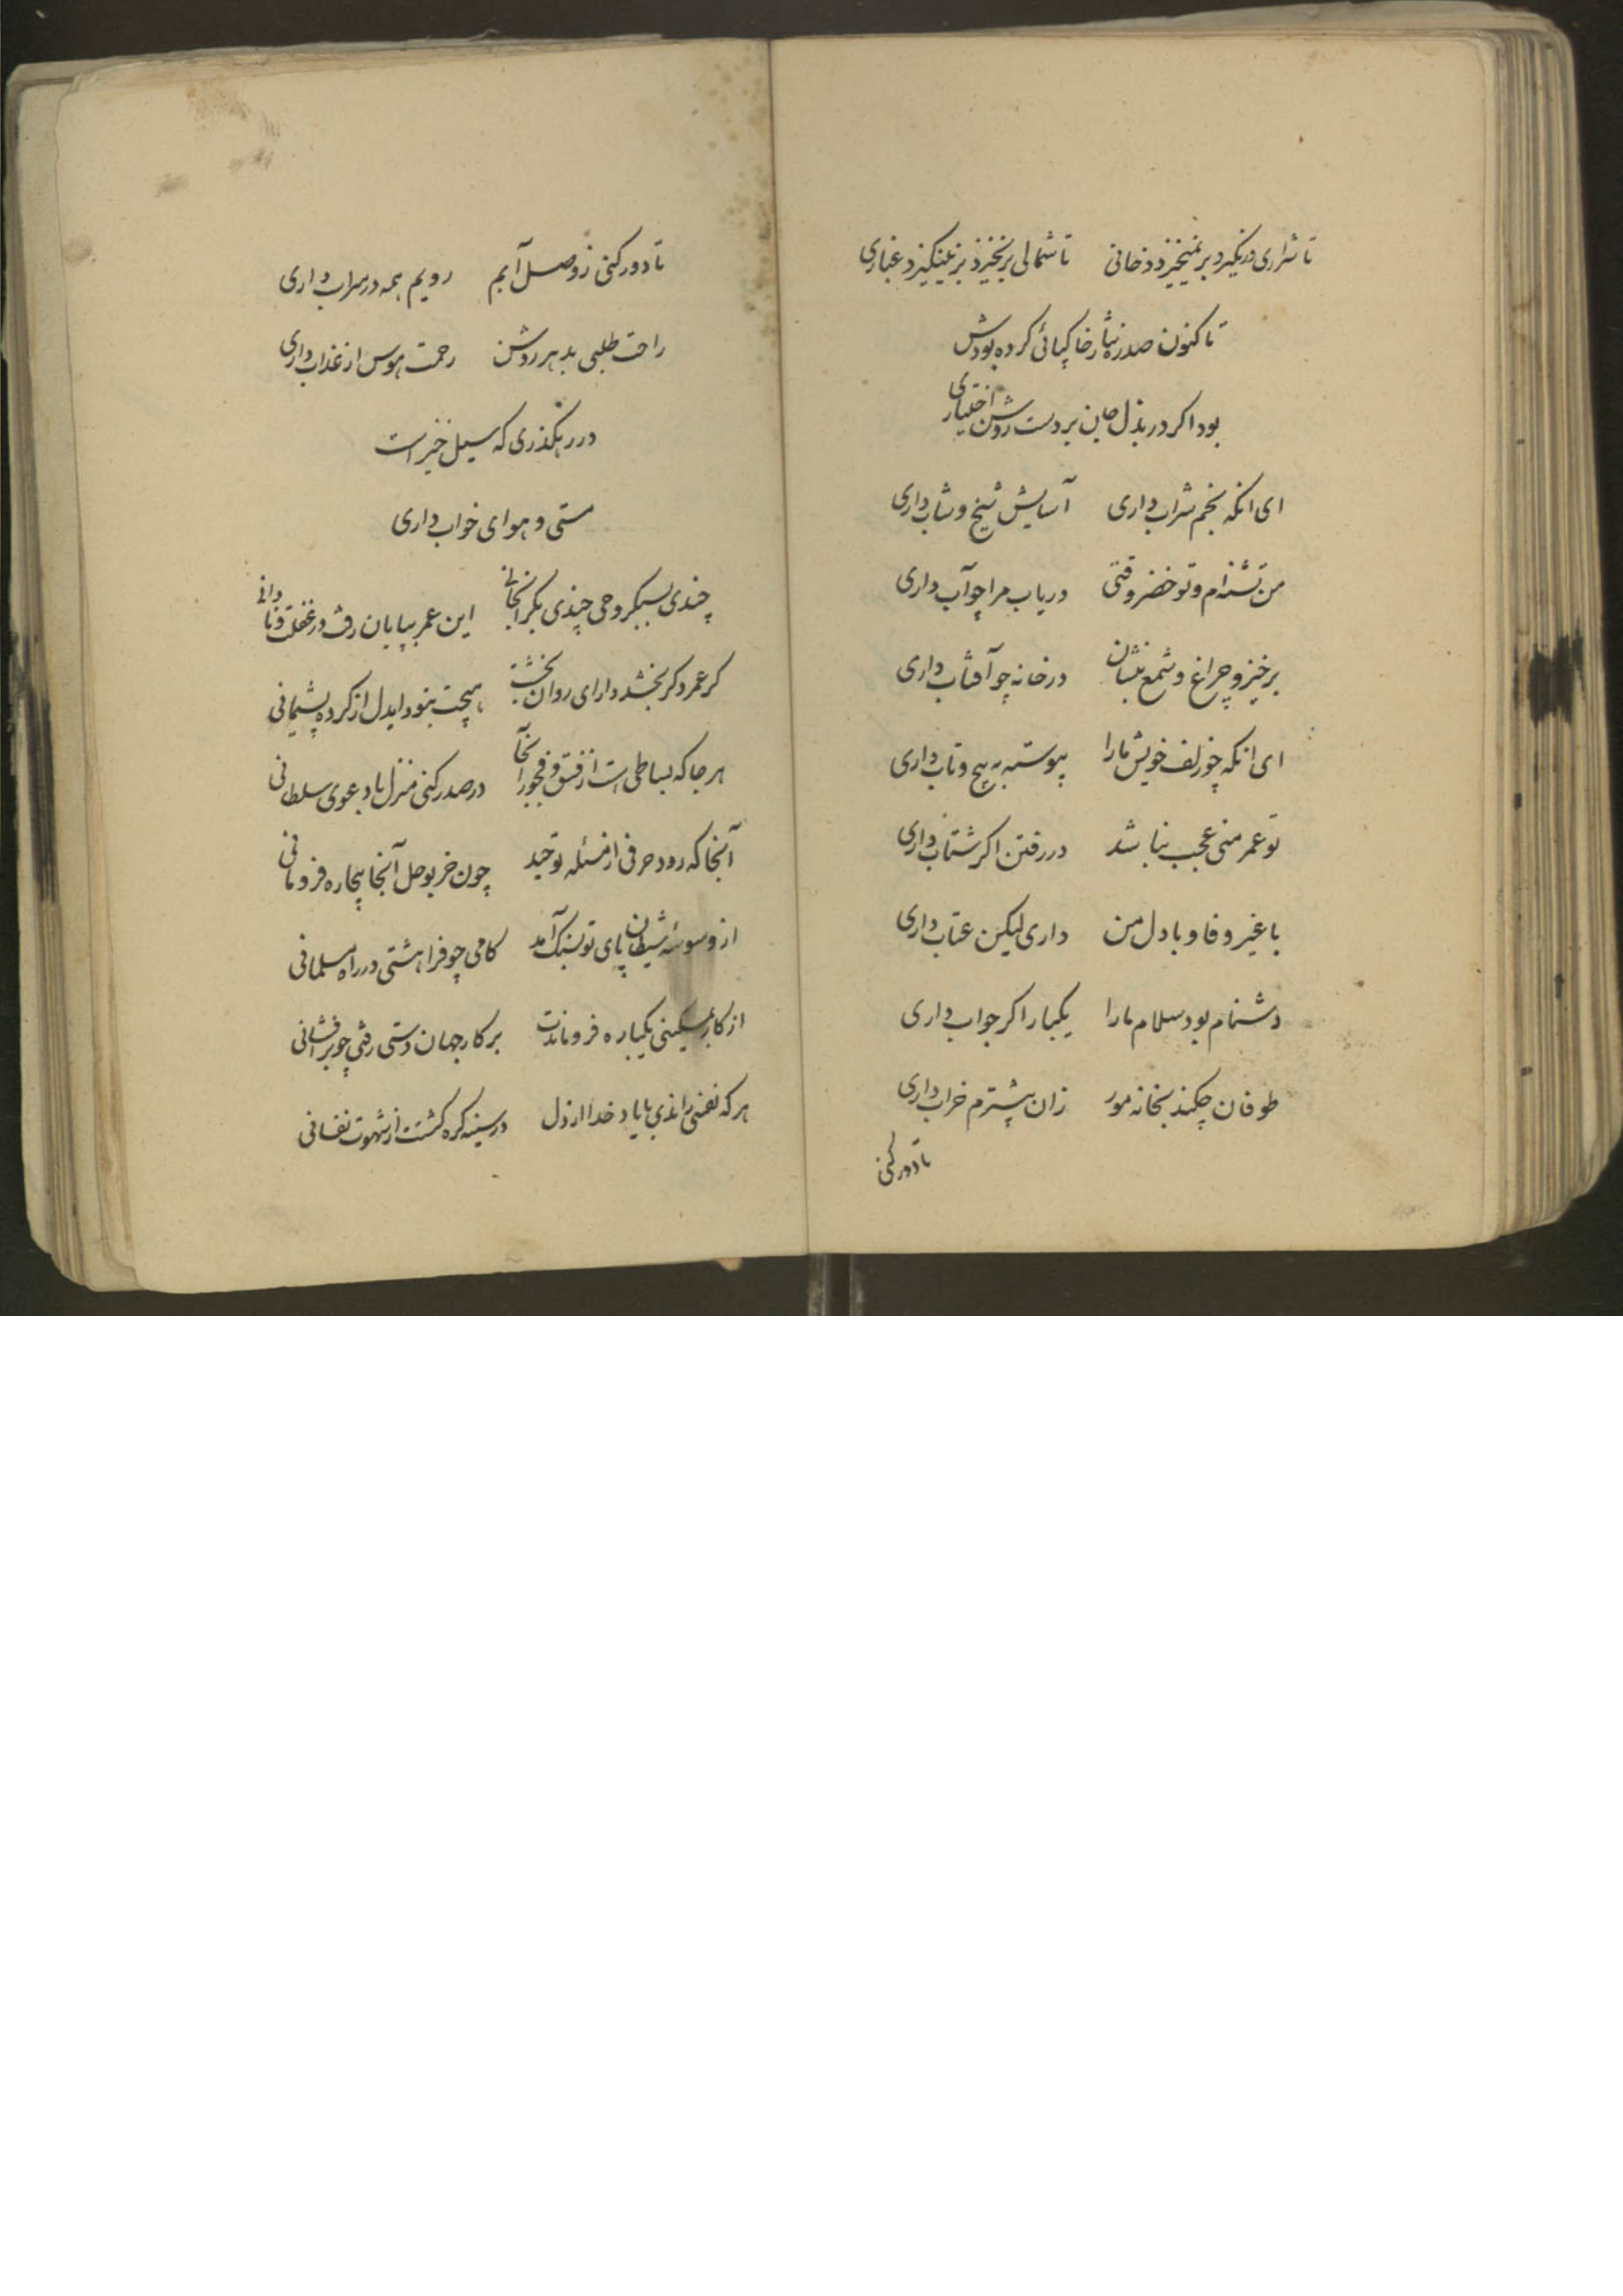 تا شراری درنگیرد برنمیخیزد دخانی تا شمالی برنخیزد برنینگیزد غباری
تا کنون صدره نثار خاکپائی کرده بودش
بود اگر در بذل جان بر دست روشن اختیاری
ای انکه بخم شراب داری آسایش شیخ و شاب داری
من تشنه‌ام و تو خضر وقتی دریاب مرا چو آب داری
برخیز و چراغ و شمع بنشان در خانه چو آفتاب داری
ای انکه چو زلف خویش ما را پیوسته به پیچ و تاب داری
تو عمر منی عجب نباشد در رفتن اگر شتاب داری
با غیر وفا و با دل من داری لیکن عتاب داری
دشنام بود سلام ما را یکبار اگر جواب داری
طوفان چکند بخانه مور زان پیشترم خراب داری
تا دور کنی
تا دور کنی ز وصل آبم رویم همه در سراب داری
راحت طلبی بدهر روشن رحمت هوس از عذاب داری
در رهگذری که سیل خیز است
مستی و هوای خواب داری
چندی بسبکروحی چندی بگرانجانی این عمر بپایان رفت در غفلت و نادانی
گر عمر دگر بخشد دارای روان بخشت هیچت نبود ایدل از کرده پشیمانی
هر جا که بساطی است از فسق و فجور آنجا در صدر کنی منزل با دعوی سلطانی
آنجا که رود حرفی از مسئله توحید چون خر بوحل آنجا بیچاره فرومانی
از وسوسه شیطان پای تو بسنگ آمد گامی چو فرا هشتی در راه مسلمانی
از کار مسکینی یکباره فروماندت بر کار جهان دستی رفتی چو برافشانی
هر که نفسی راندی با یاد خدا از دل در سینه گره گشتت از شهوت نفسانی